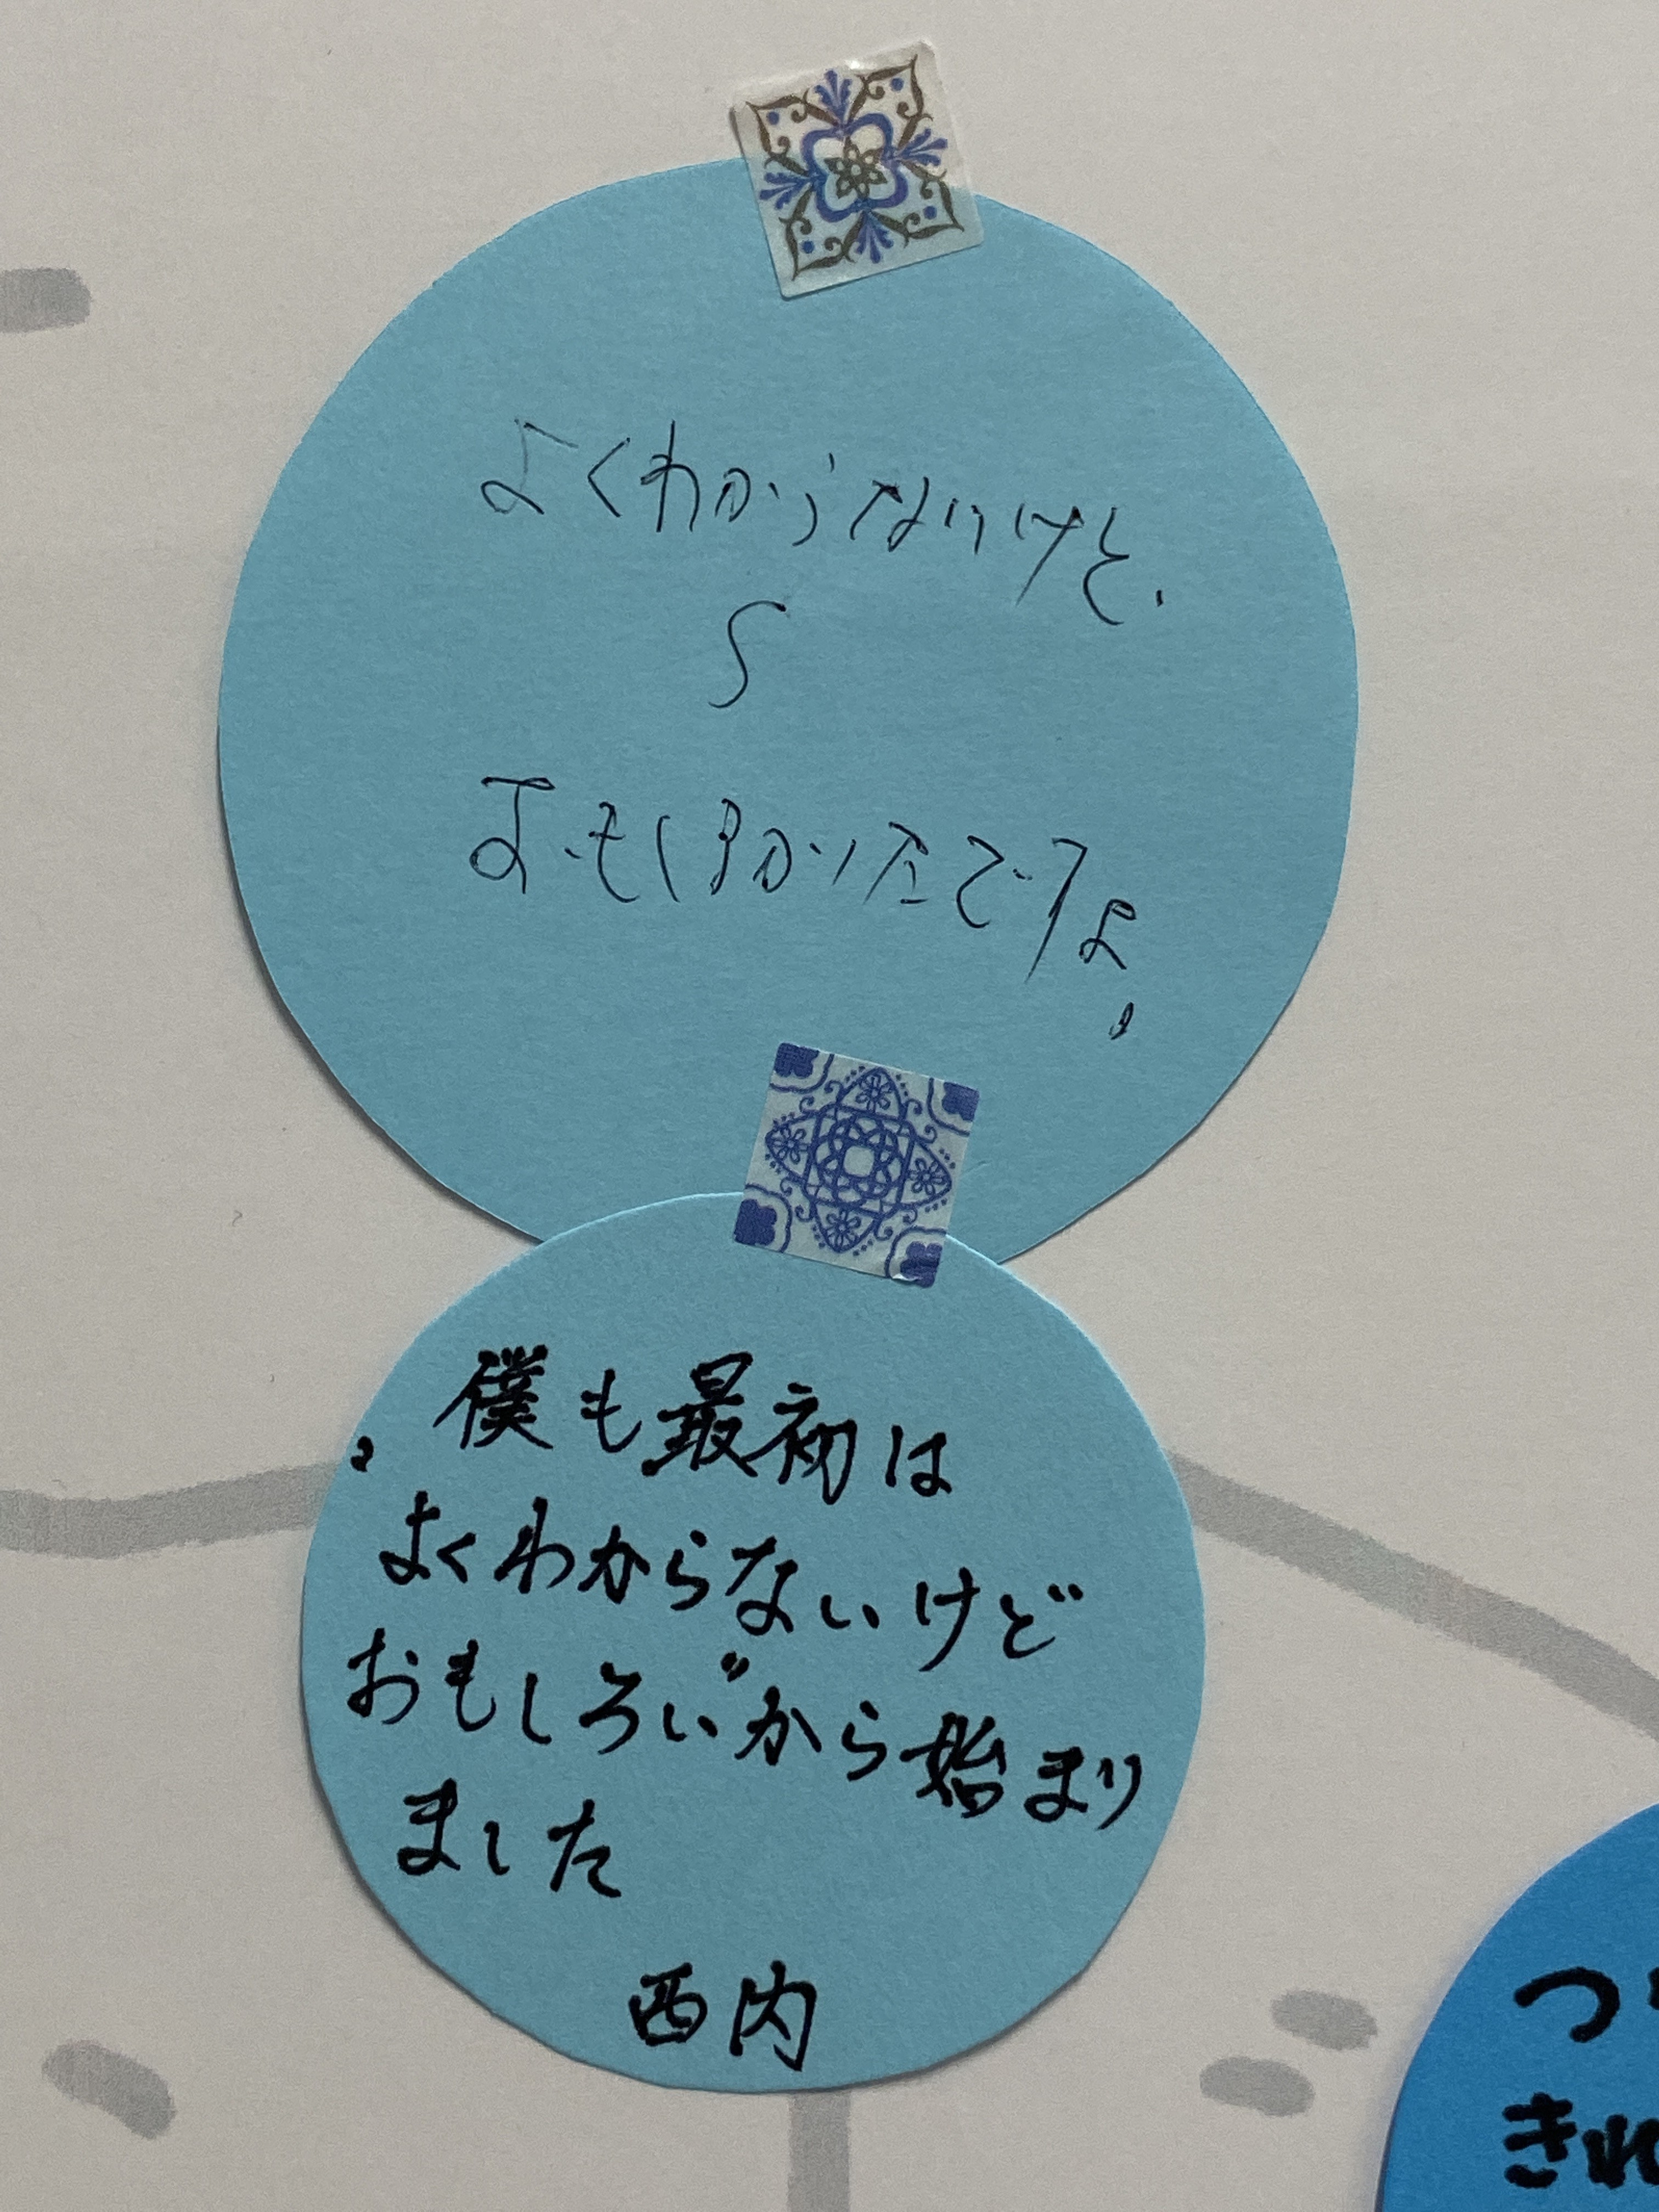 よくわからないけど、
〜
おもしろかったですよ。
僕も最初は
よくわからないけど
おもしろい"から始まり
ました
西内
つ
きれ